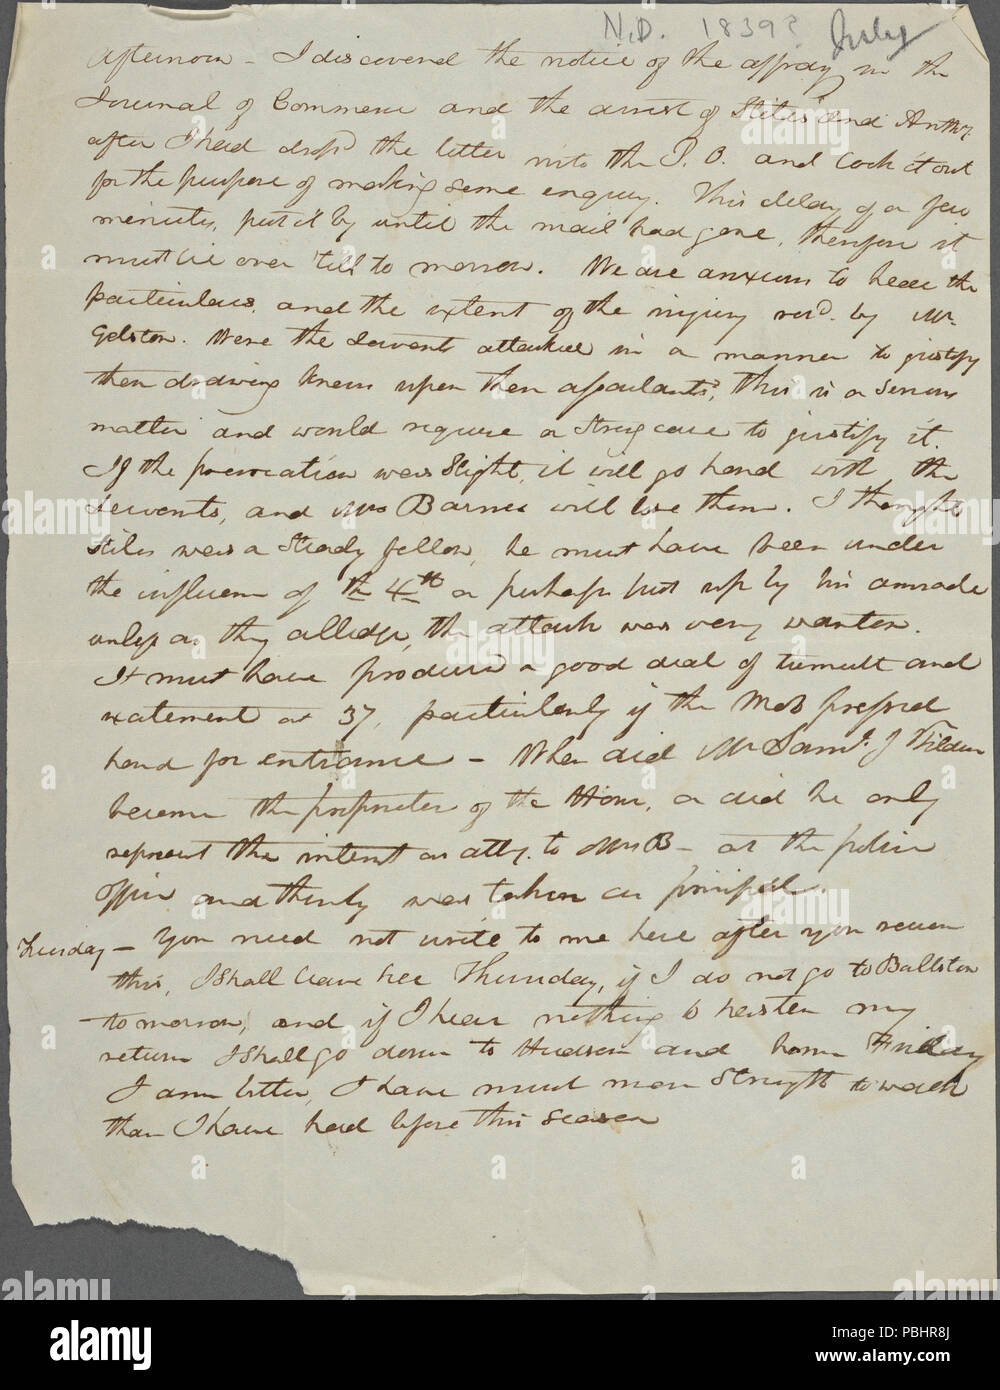 N.D. 1839? July
Afternoon – I discovered the notice of the affray in the
Journal of Commerce and the arrest of Stiles and Anthy.
after I had drop'd the letter into the P.O. and took it out
for the purpose of making some enquiry. This delay of a few
minutes, put it by until the mail had gone, therefore it
must lie over 'till to morrow. We are anxious to hear the
particulars, and the extent of the injury recd. by Mr.
Gelston. Were the servants attacked in a manner to justify
their drawing knives upon their assailants, this is a serious
matter and would require a strong case to justify it.
If the provocation was slight, it will go hard with the
servents, and Mrs Barnes will lose them. I thought
Stiles was a steady fellow, he must have been under
the influence of the 4th or perhaps put up by his comrade
unless as they alledge, the attack was very wanton.
It must have produced a good deal of tumult and
excitement at 37, particularly if the Mob pressed
hard for entrance – When did Mr Saml. J Tilden
become the proprietor of the House, or did he only
represent the interest as atty. to Mrs B – at the police
office and thereby was taken as principal.
Tuesday – You need not write to me here after you receive
this, I shall leave here Thursday, if I do not go to Ballston
tomorrow, and if I hear nothing to hasten my
return I shall go down to Hudson and home Friday
I am better, I have much more strength to walk
than I have had before this season
alamy
Image ID: PBHR8J
www.alamy.com